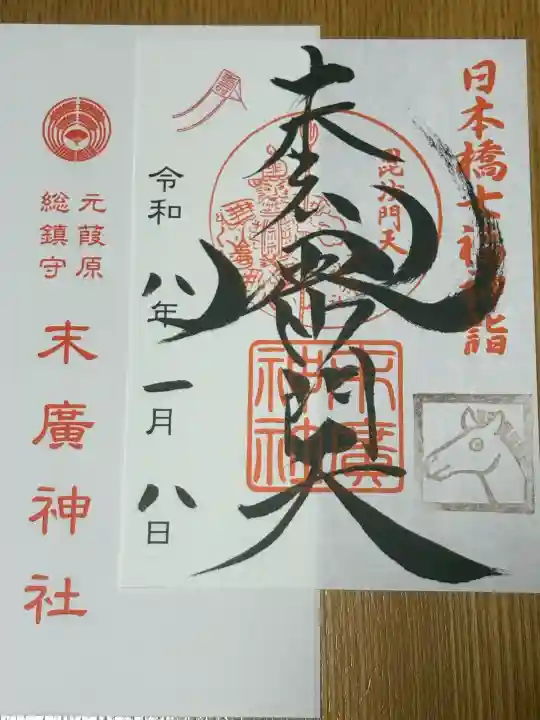 日本橋七福神詣
毘沙門天
末廣神社
毘沙門天
末廣
神社
令和八年一月八日
元葭原
総鎮守
末廣神社